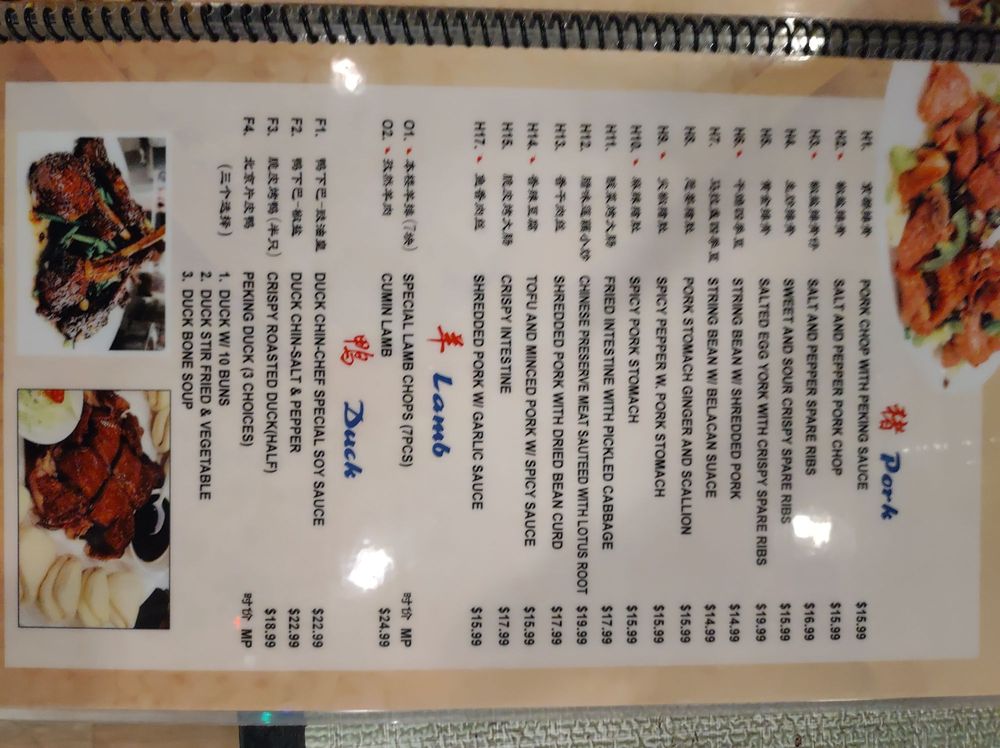 猪 Pork
H1. 京都排骨 PORK CHOP WITH PEKING SAUCE $15.99
H2. 椒盐排骨 SALT AND PEPPER PORK CHOP $15.99
H3. 椒盐排骨仔 SALT AND PEPPER SPARE RIBS $16.99
H4. 排骨 SWEET AND SOUR CRISPY SPARE RIBS $15.99
H5. 黄金排骨 SALTED EGG YORK WITH CRISPY SPARE RIBS $19.99
H6. 干煸四季豆 STRING BEAN W/ SHREDDED PORK $14.99
H7. 马拉盏四季豆 STRING BEAN W/ BELACAN SUACE $14.99
H8. 姜葱猪肚 PORK STOMACH GINGER AND SCALLION $15.99
H9. 尖椒猪肚 SPICY PEPPER W. PORK STOMACH $15.99
H10. 麻辣猪肚 SPICY PORK STOMACH $15.99
H11. 酸菜炒大肠 FRIED INTESTINE WITH PICKLED CABBAGE $17.99
H12. 腊味莲藕小炒 CHINESE PRESERVE MEAT SAUTEED WITH LOTUS ROOT $19.99
H13. 香干肉丝 SHREDDED PORK WITH DRIED BEAN CURD $17.99
H14. 香辣豆腐 TOFU AND MINCED PORK W/ SPICY SAUCE $15.99
H15. 脆皮烤大肠 CRISPY INTESTINE $17.99
H17. 鱼香肉丝 SHREDDED PORK W/ GARLIC SAUCE $15.99
羊 Lamb
O1. 本楼羊排 (7块) SPECIAL LAMB CHOPS (7PCS) 时价 MP
O2. 孜然羊肉 CUMIN LAMB $24.99
鸭 Duck
F1. 鸭下巴-豉油皇 DUCK CHIN-CHEF SPECIAL SOY SAUCE $22.99
F2. 鸭下巴-椒盐 DUCK CHIN-SALT & PEPPER $22.99
F3. 脆皮烤鸭 (半只) CRISPY ROASTED DUCK(HALF) $18.99
F4. 北京片皮鸭 PEKING DUCK (3 CHOICES) 时价 MP
(三个选择) 1. DUCK W/ 10 BUNS
2. DUCK STIR FRIED & VEGETABLE
3. DUCK BONE SOUP